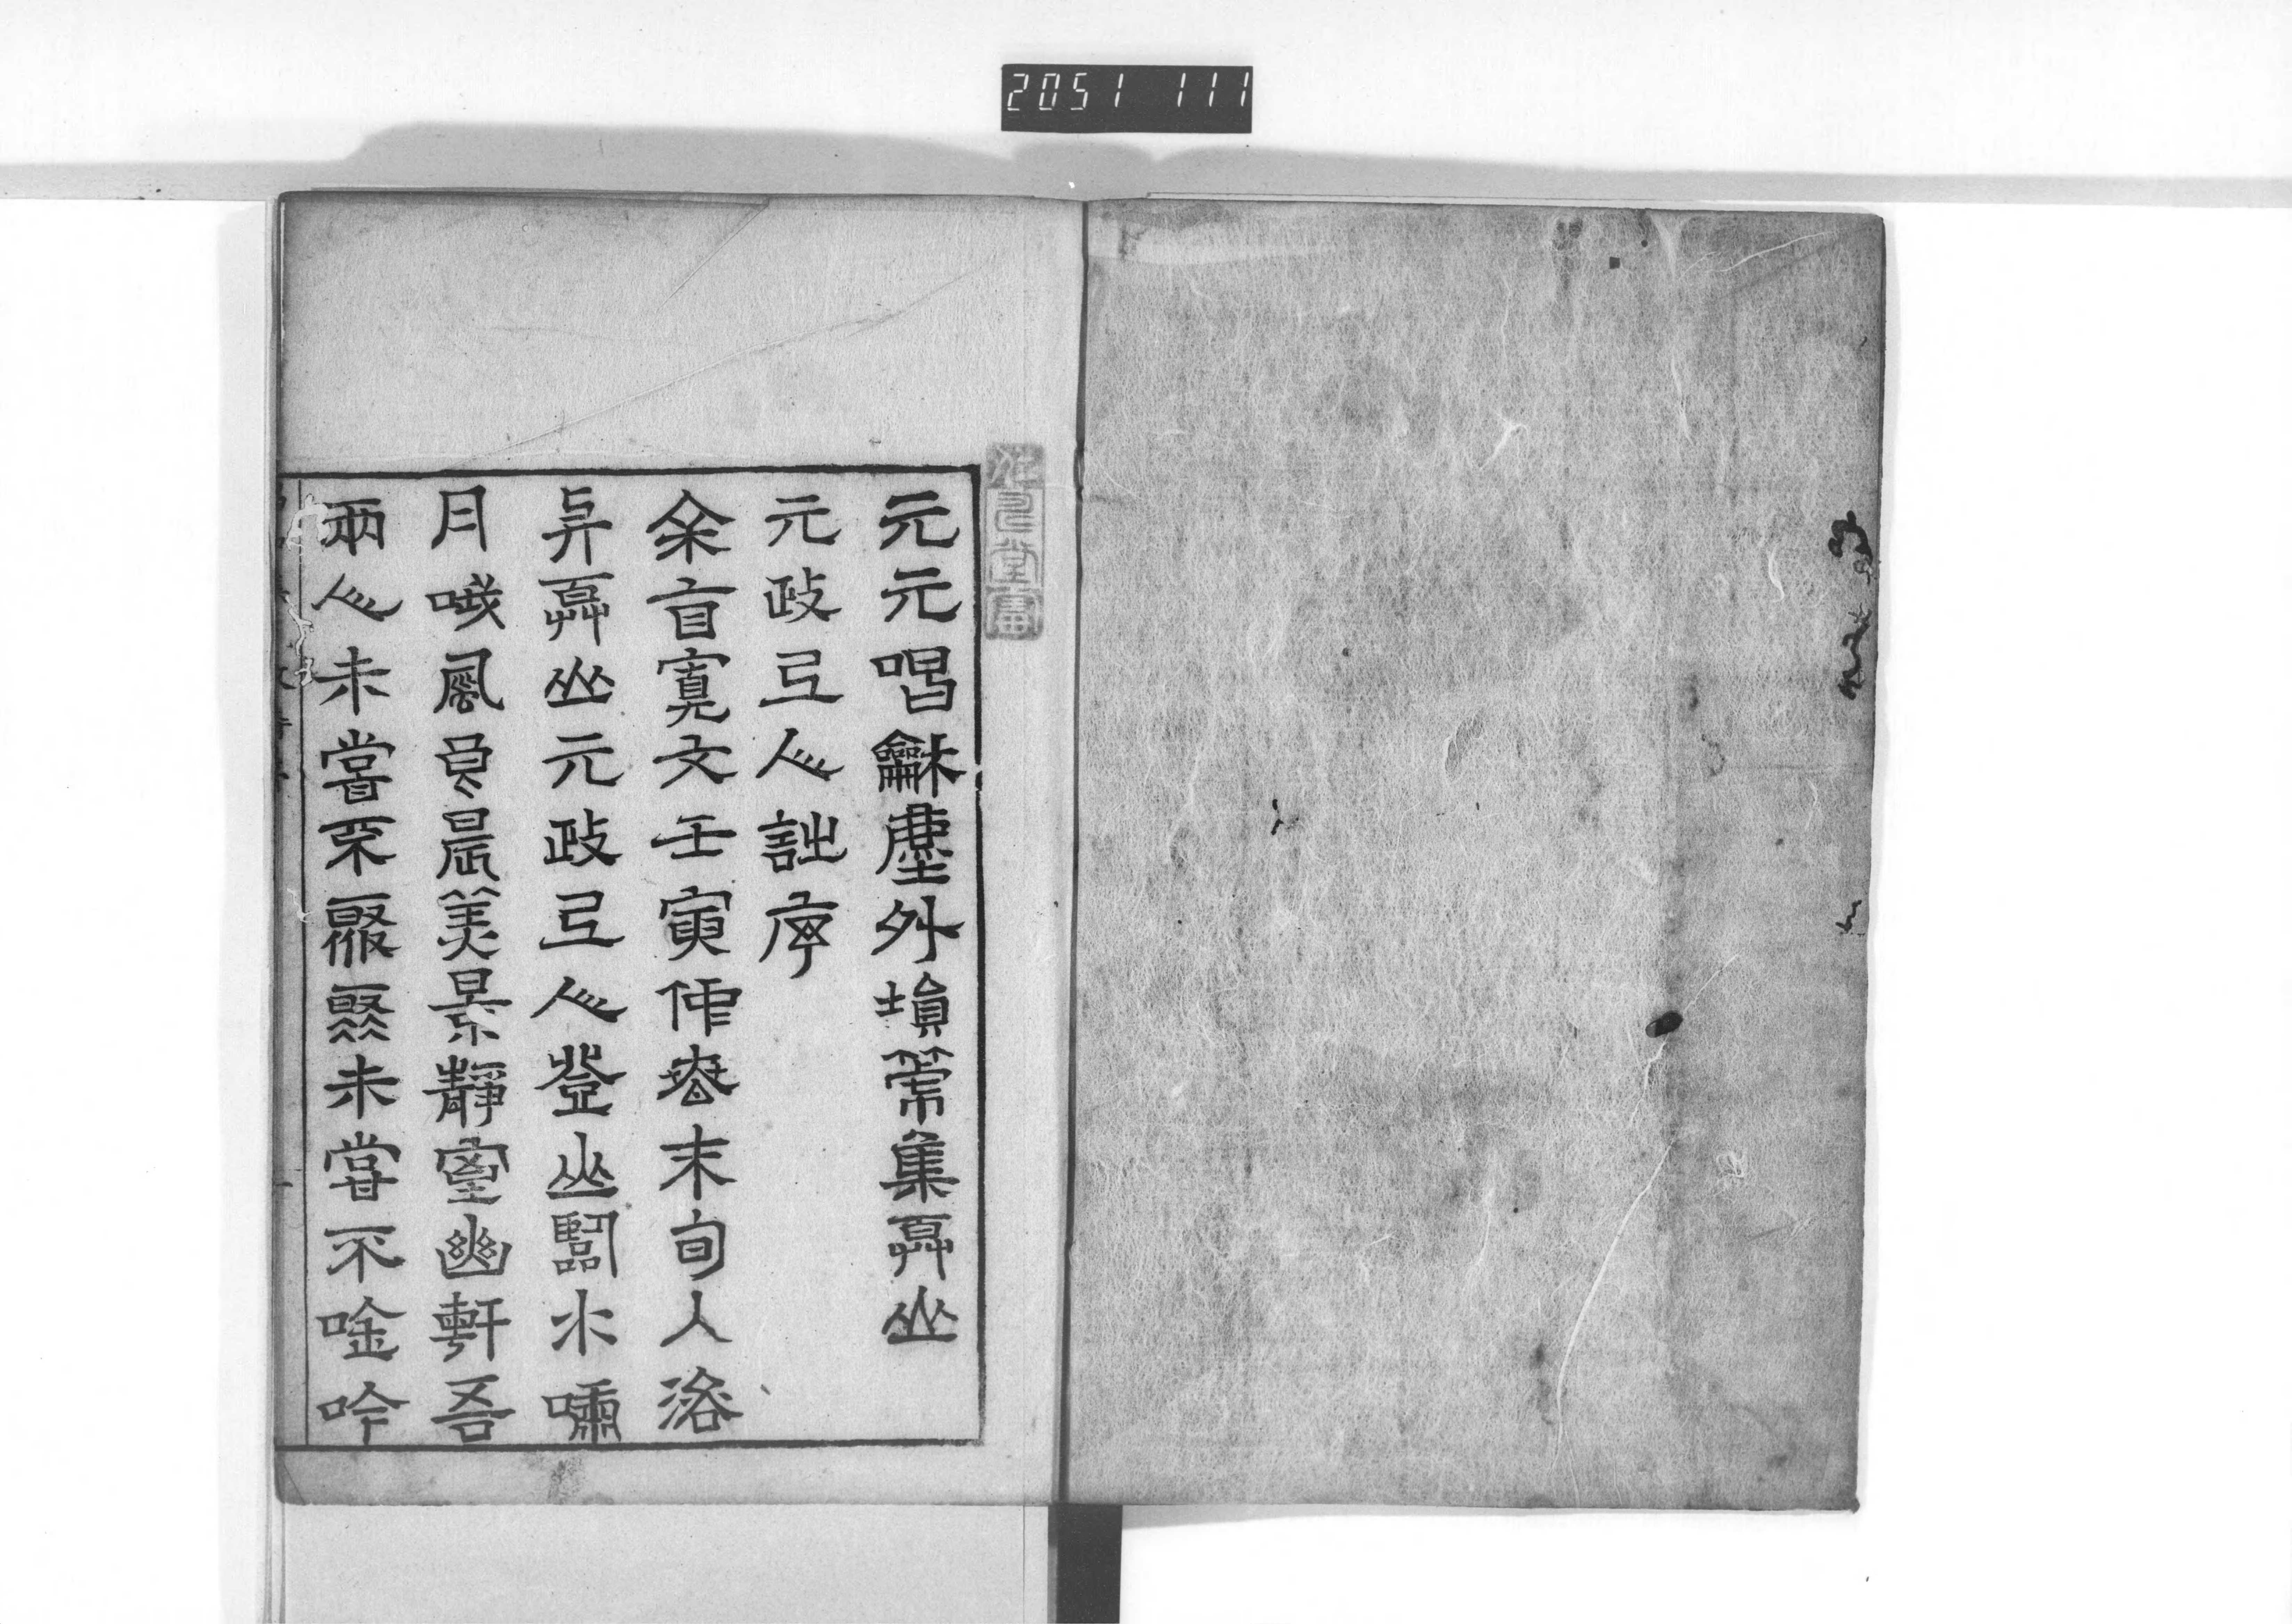 2051 111
元元唱龢塵外塤箎集草山
元政上人詩序
余自寬文壬寅仲春末旬入洛
與草山元政上人登山臨水嘯
月哦風良晨美景靜室幽軒吾
兩人未嘗不聚聚未嘗不唫吟